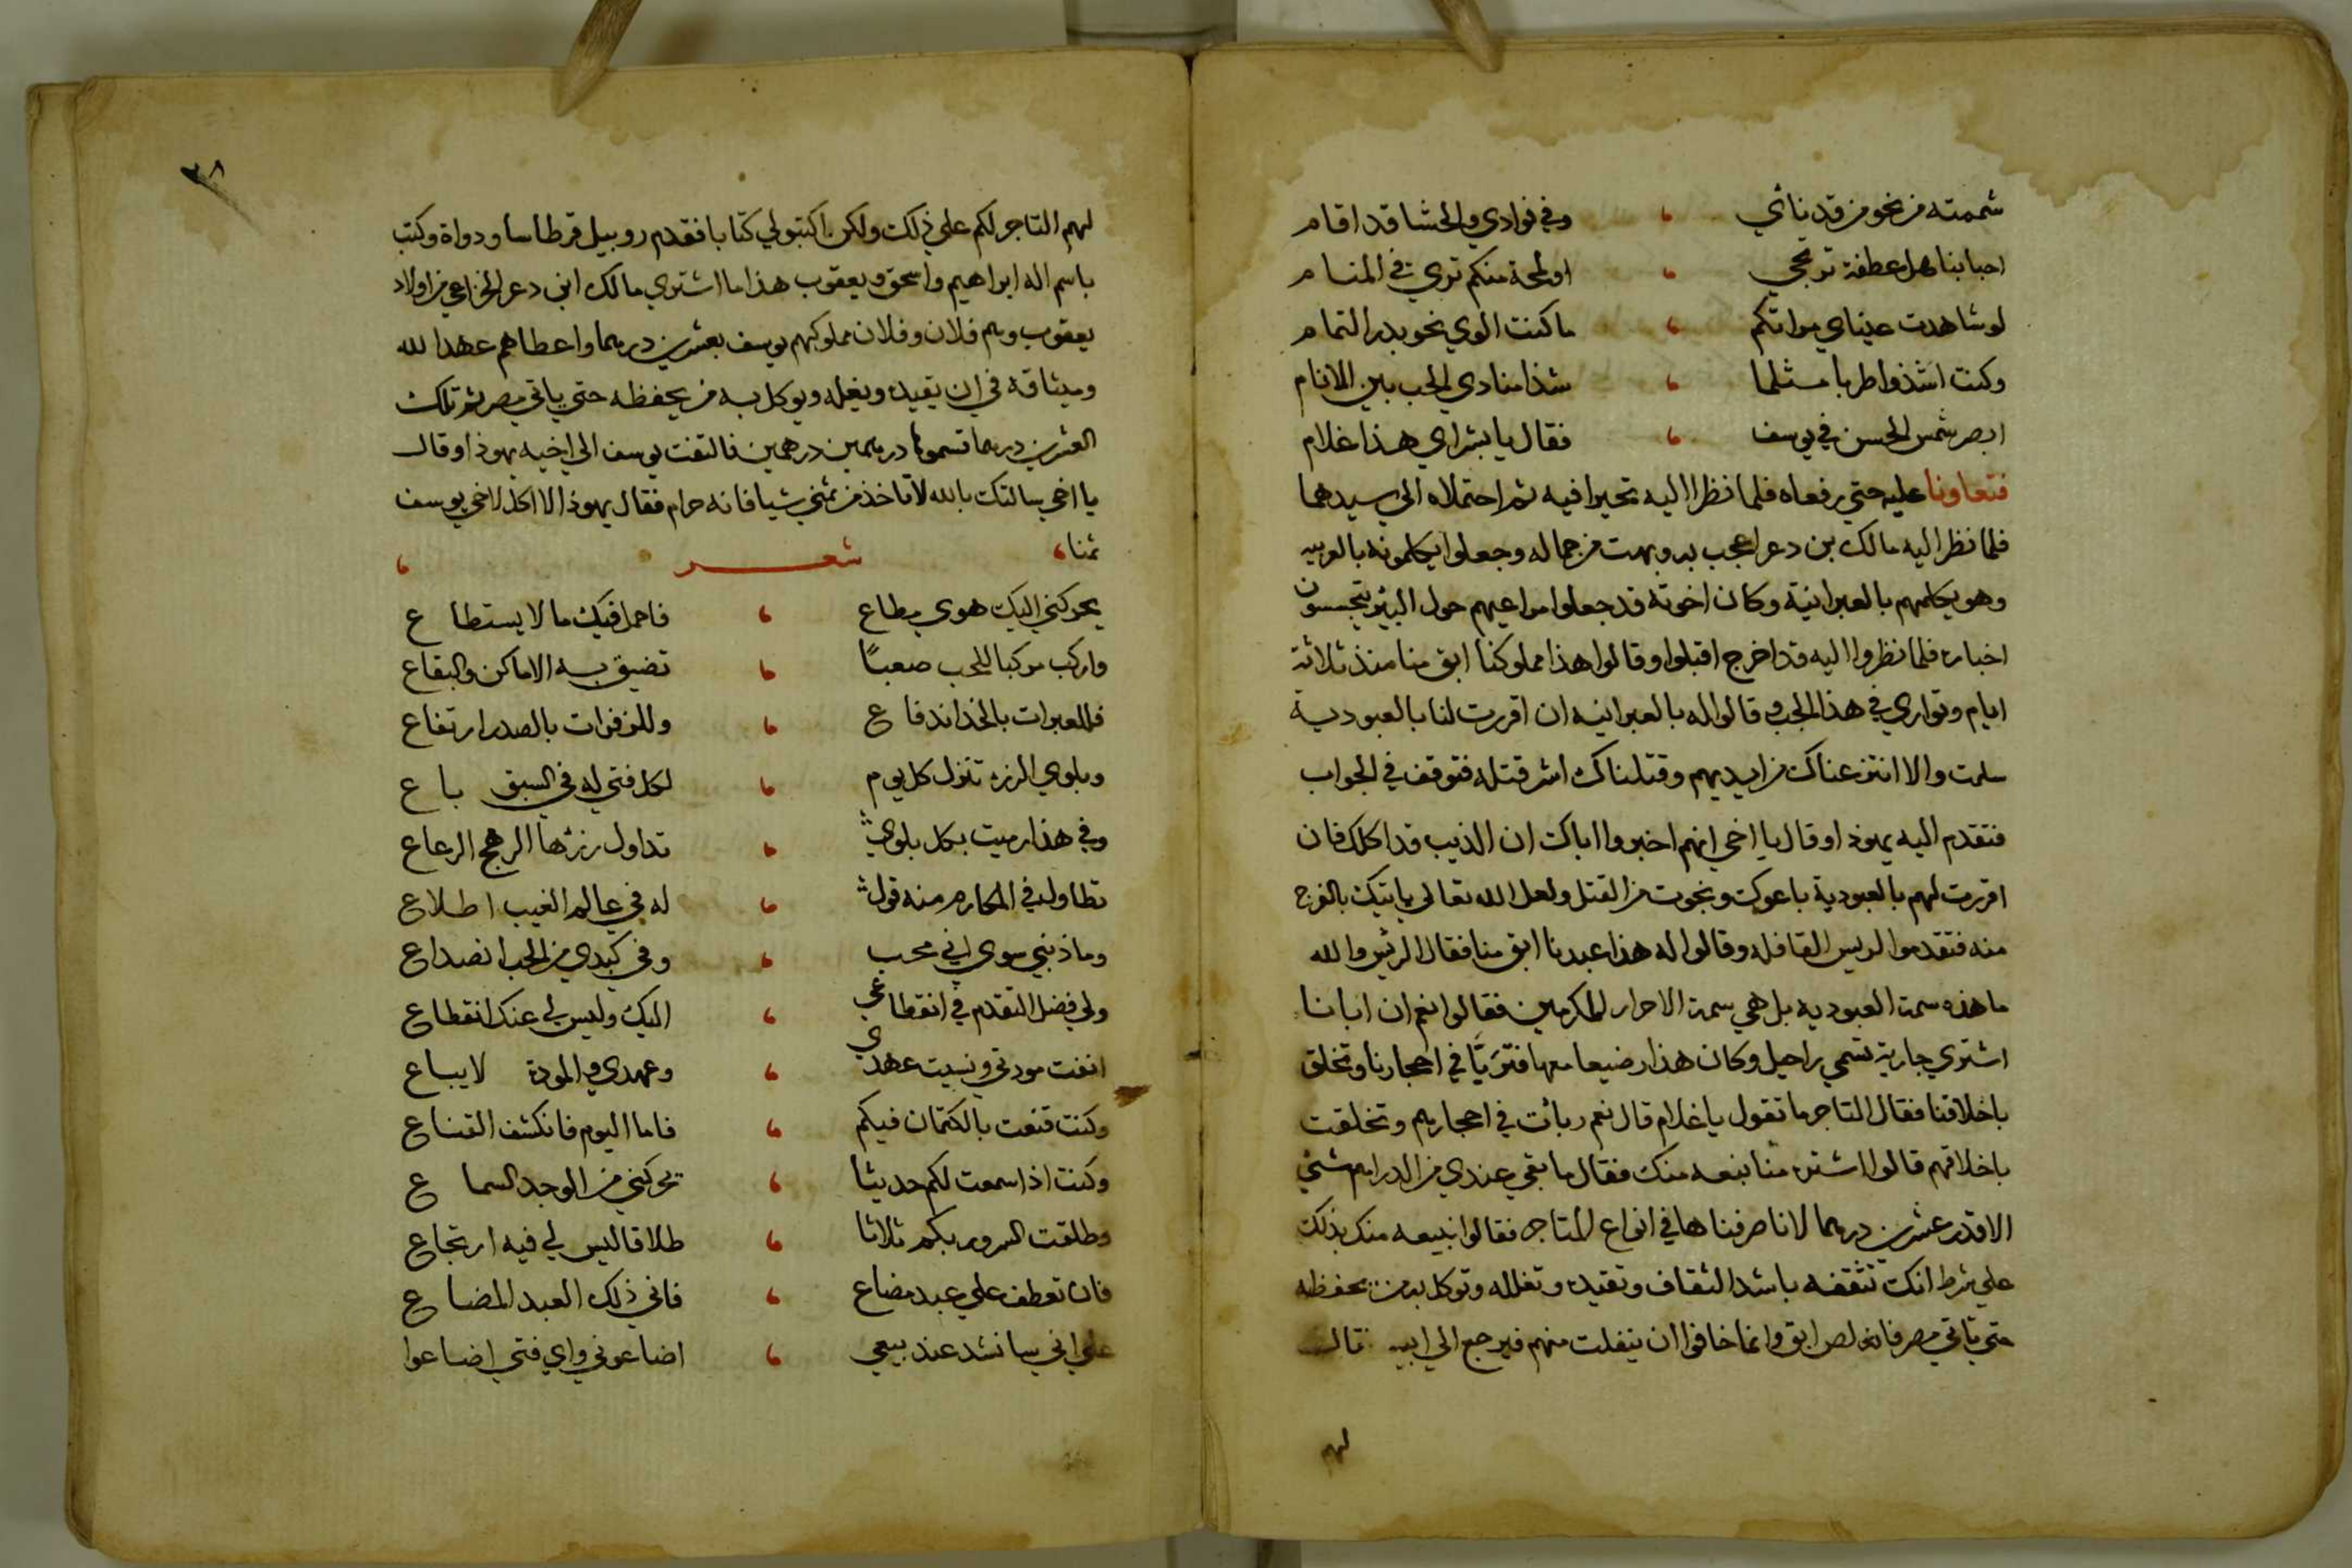 شممته من نحو من قد نائي ، وفي فوادي والحشا قد اقام
احبابنا هل عطفة ترتجي ، او لمحة منكم تري في المنام
لو شاهدت عيناي مراتكم ، ما كنت الوي نحو بدر التمام
وكنت اشذوا طربا مثلما ، شذا منادي الحب بين الانام
ابصر شمس الحسن في يوسف ، فقال يا بشراي هذا غلام
فتعاونا عليه حتي رفعاه فلما نظرا اليه تحيرا فيه ثم احتملاه الي سيدهما
فلما نظر اليه مالك بن دعر اعجب به وبهت من جماله وجعلوا يكلمونه بالعربيه
وهو يكلمهم بالعبرانية وكان اخوته قد جعلوا مراعيهم حول البير يتجسسون
اخباره فلما نظروا اليه قد اخرج اقبلوا وقالوا هذا مملوكنا ابق منا منذ ثلاثة
ايام وتواري في هذا الجب وقالوا له بالعبرانيه ان اقررت لنا بالعبودية
سلمت والا انتزعناك من ايديهم وقتلناك اشر قتله فتوقف في الجواب
فتقدم اليه يهوذا وقال يا اخي انهم اخبروا اباك ان الذيب قد اكلك فان
اقررت لهم بالعبودية باعوك ونجوت من القتل ولعل الله تعالي ياتيك بالفرج
منه فتقدموا الريس القافله وقالوا له هذا عبدنا ابق منا فقال الريس والله
ما هذه سمة العبوديه بل هي سمة الاحرار المكرمين فقالوا نعم ان ابانا
اشتري جارية تسمي راحيل وكان هذا رضيعا معها فتربا في احجارنا وتخلق
باخلاقنا فقال التاجر ما تقول يا غلام قال نعم ربات في احجارهم وتخلقت
باخلاقهم قالوا اشتره منا نبعه منك فقال ما بقي عندي من الدراهم شئ
الا قدر عشرين درهما لانا صرفناها في انواع المتاجر فقالوا نبيعه منك بذلك
علي شرط انك تثقفه باشد الثقاف وتقيده وتغلله وتوكل به من يحفظه
حتي تاتي مصر فانه لص ابق وانما خافوا ان ينفلت منهم فيرجع الي ابيه قال
لهم
٣٨
لهم التاجر لكم علي ذلك ولكن اكتبوا لي كتابا فقدم روبيل قرطاسا ودواة وكتب
باسم اله ابراهيم واسحق ويعقوب هذا ما اشتري مالك ابن دعر الخزاعي من اولاد
يعقوب وهم فلان وفلان مملوكهم يوسف بعشرين درهما واعطاهم عهد الله
وميثاقه في ان يقيده ويغله ويوكل به من يحفظه حتي ياتي مصر ثم تلك
العشرين درهما قسموها درهمين درهمين فالتفت يوسف الي اخيه يهوذا وقال
يا اخي سالتك بالله لا تاخذ من ثمني شيا فانه حرام فقال يهوذا لا اكل لاخي يوسف
ثمنا ، شعر ،
يحركني اليك هوي مطاع ، فاحمل فيك ما لا يستطاع
واركب مركبا للحب صعبًا ، تضيق به الاماكن والبقاع
فللعبرات بالخد اندفاع ، وللزفرات بالصدر ارتفاع
وبلوي الرزء تنزل كل يوم ، لكل فتي له في السبق باع
وفي هذا رميت بكل بلوي ، تداول رزئها الرهج الرعاع
تطاول في المكارم منه قول ، له في عالم الغيب اطلاع
وما ذنبي سوي اني محب ، وفي كبدي من الحب انصداع
ولي فضل التقدم في انقطاعي ، اليك وليس لي عنك انقطاع
انفت مودتي ونسيت عهدي ، وعهدي والمودة لا يباع
وكنت قنعت بالكتمان فيكم ، فاما اليوم فانكشف القناع
وكنت اذا سمعت لكم حديثا ، تحركني من الوجد السماع
وطلقت السرور بكم ثلاثا ، طلاقا ليس لي فيه ارتجاع
فان تعطف علي عبد مضاع ، فاني ذلك العبد المضاع
علي اني سانشد عند بيعي ، اضاعوني واي فتي اضاعوا